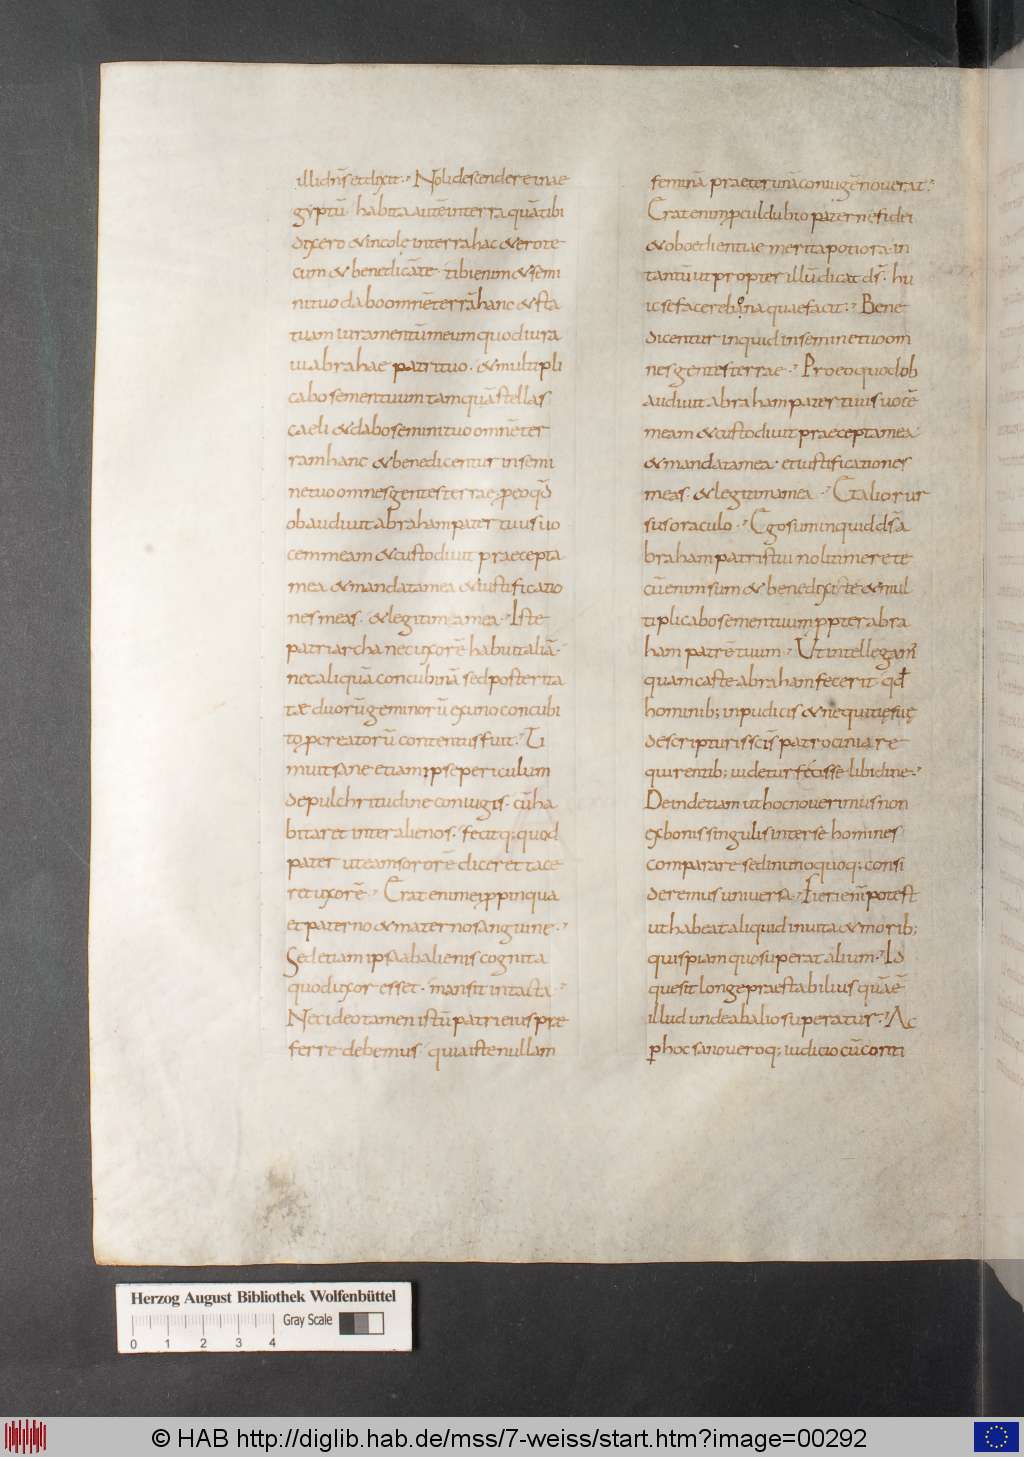 illi dn̄s et dixit· Noli descendere in ae
gyptū habita autē in terra quā tibi
dixero & incole in terra hac & ero te
cum & benedicā te· tibi enim & semi
ni tuo dabo omnē terrā hanc & sta
tuam iuramentū meum quod iura
ui abrahae patri tuo· & multipli
cabo semen tuum tamquā stellas
caeli & dabo semini tuo omnē ter
ram hanc & benedicentur in semi
ne tuo omnes gentes terrae p eo qđ
obaudiuit abraham pater tuus uo
cem meam & custodiuit praecepta
mea & mandata mea & iustificatio
nes meas· & legitima mea· Iste
patriarcha nec uxorē habuit aliā·
nec aliquā concubinā sed posterita
tæ duorū geminorū ex uno concubi
to pcreatorū contentus fuit· Ti
muit sane etiam ipse periculum
de pulchritudine coniugis· cū ha
bitaret inter alienos· fecitq; quod
pater ut eam sororē diceret tace
ret uxorē· Erat enim ei ppinqua
et paterno & materno sanguine·
Sed etiam ipsa ab alienis cognita
quod uxor esset· mansit intacta·
Nec ideo tamen istū patri eius prę
ferre debemus· quia iste nullam
feminā praeter unā coniugē nouerat·
Erat enim pcul dubio paternę fidei
& oboedientiae merita potiora in
tantū ut propter illū dicat ds̄· hu
ic se facere bona quae facit· Bene
dicentur inquid in semine tuo om
nes gentes terrae· Pro eo quod ob
audiuit abraham pater tuus uocē
meam & custodiuit praecepta mea·
& mandata mea· et iustificationes
meas· & legitima mea· Et alio rur
sus oraculo· Ego sum inquid ds̄ a
braham patris tui noli timere te
cū enim sum & benedixi te & mul
tiplicabo semen tuum ppter abra
ham patrē tuum· Ut intellegam'
quam caste abraham fecerit qđ
hominib; inpudicis & nequitię suę
de scripturis scīs patrocinia re
quirentib; uidetur fecisse libidine·
Deind etiam ut hoc nouerimus non
ex bonis singulis inter se homines
comparare sed in unoquoq; consi
deremus uniuersa· Fieri enī potest
ut habeat aliquid in uita & morib;
quispiam quo superat alium· Id
que sit longe praestabilius quā ē
illud unde ab alio superatur· Ac
p hoc sano ueroq; iudicio cū conti
Herzog August Bibliothek Wolfenbüttel
Gray Scale
0 1 2 3 4
© HAB http://diglib.hab.de/mss/7-weiss/start.htm?image=00292